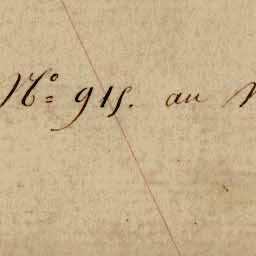 No= 915. au